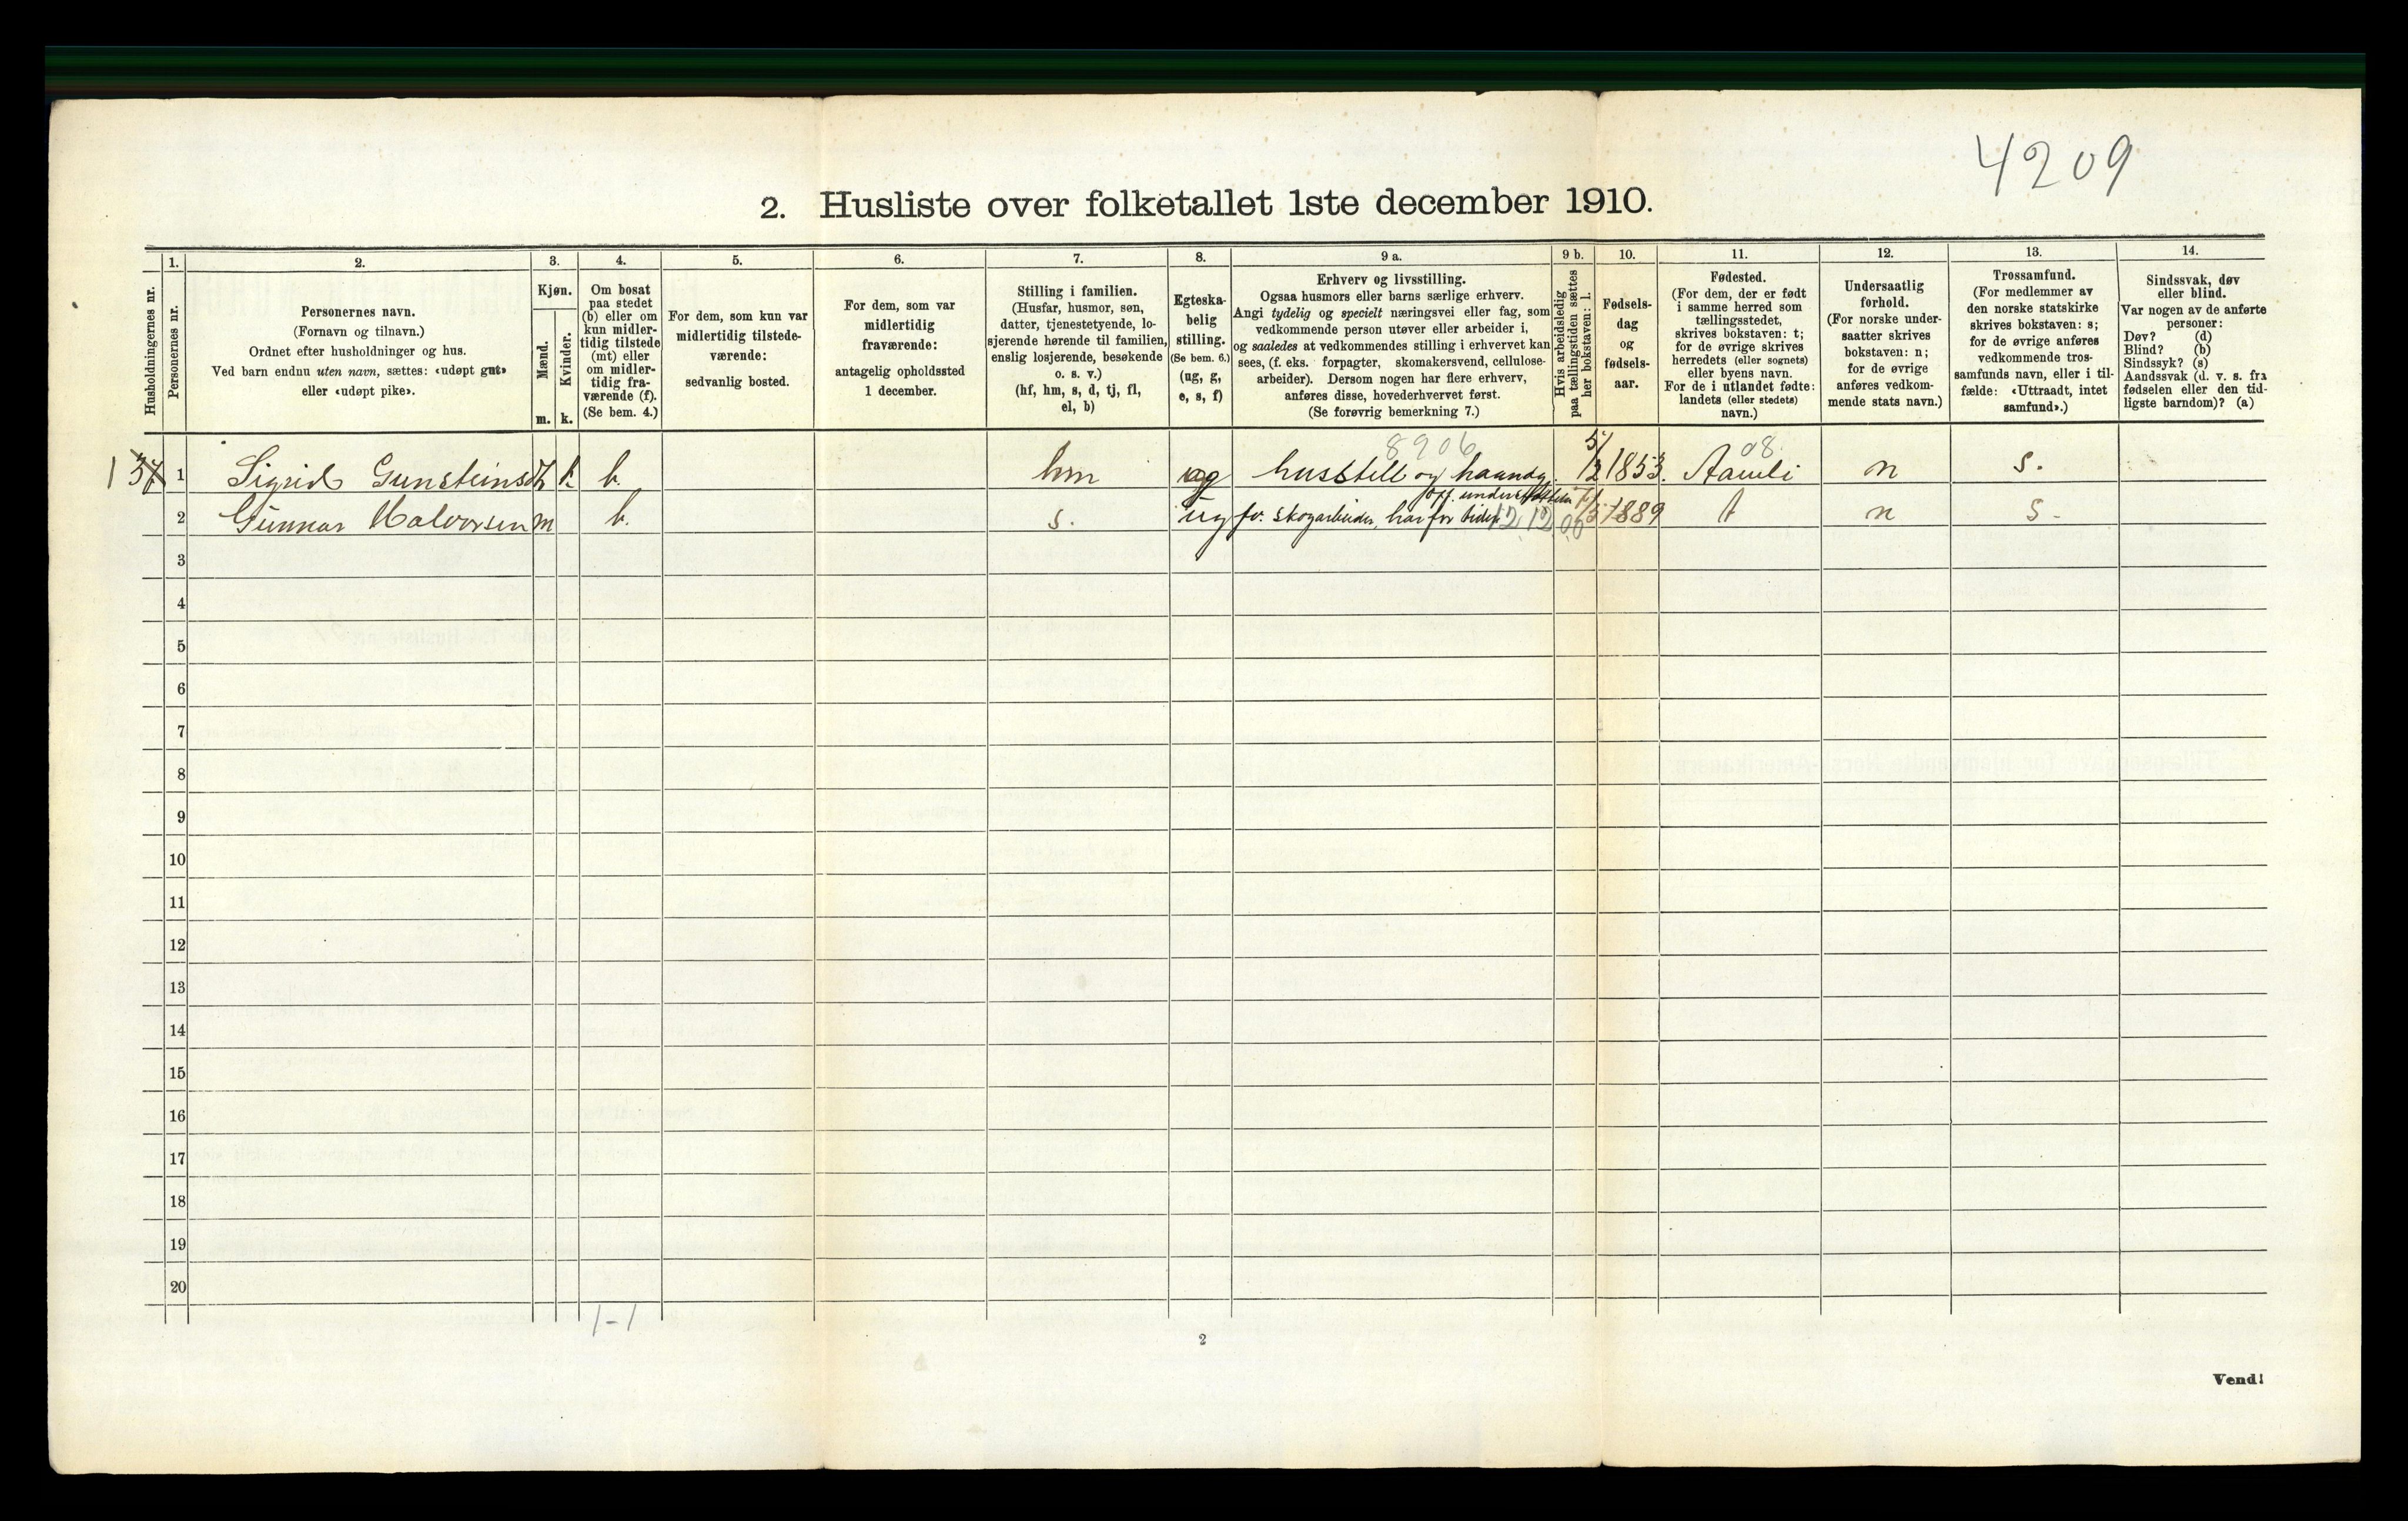 4209
2. Husliste over folketallet 1ste december 1910.
Husholdningernes nr.
1.
Personernes nr.
2.
Personernes navn.
(Fornavn og tilnavn.)
Ordnet efter husholdninger og hus.
Ved barn endnu uten navn, sættes: «udøpt gut»
eller «udøpt pike».
3.
Kjøn.
Mænd.
Kvinder.
m. k.
4.
Om bosat
paa stedet
(b) eller om
kun midler-
tidig tilstede
(mt) eller
om midler-
tidig fra-
værende (f).
(Se bem. 4.)
5.
For dem, som kun var
midlertidig tilstede-
værende:
sedvanlig bosted.
6.
For dem, som var
midlertidig
fraværende:
antagelig opholdssted
1 december.
7.
Stilling i familien.
(Husfar, husmor, søn,
datter, tjenestetyende, lo-
sjerende hørende til familien,
enslig losjerende, besøkende
o. s. v.)
(hf, hm, s, d, tj, fl,
el, b)
8.
Egteska-
belig
stilling.
(Se bem. 6.)
(ug, g,
e, s, f)
9 a.
Erhverv og livsstilling.
Ogsaa husmors eller barns særlige erhverv.
Angi tydelig og specielt næringsvei eller fag, som
vedkommende person utøver eller arbeider i,
og saaledes at vedkommendes stilling i erhvervet kan
sees, (f. eks. forpagter, skomakersvend, cellulose-
arbeider). Dersom nogen har flere erhverv,
anføres disse, hovederhvervet først.
(Se forøvrig bemerkning 7.)
9 b.
Hvis arbeidsledig
paa tællingstiden sættes
her bokstaven: l.
10.
Fødsels-
dag
og
fødsels-
aar.
11.
Fødested.
(For dem, der er født
i samme herred som
tællingsstedet,
skrives bokstaven: t;
for de øvrige skrives
herredets (eller sognets)
eller byens navn.
For de i utlandet fødte:
landets (eller stedets)
navn.)
12.
Undersaatlig
forhold.
(For norske under-
saatter skrives
bokstaven: n;
for de øvrige
anføres vedkom-
mende stats navn.)
13.
Trossamfund.
(For medlemmer av
den norske statskirke
skrives bokstaven: s;
for de øvrige anføres
vedkommende tros-
samfunds navn, eller i til-
fælde: «Uttraadt, intet
samfund».)
14.
Sindssvak, døv
eller blind.
Var nogen av de anførte
personer:
Døv? (d)
Blind? (b)
Sindssyk? (s)
Aandssvak (d. v. s. fra
fødselen eller den tid-
ligste barndom)? (a)
8906 08.
1 1 Sigrid k b. hm husstell og haandg. 5/2 1853. Aamli n s.
2 Gunnar Halvorsen m b. s. ug fv. skogarbeider, har for tiden 12.12.00 1889 t n s -
3
4
5
6
7
8
9
10
11
12
13
14
15
16
17
18
19
20
1-1
2
Vend!